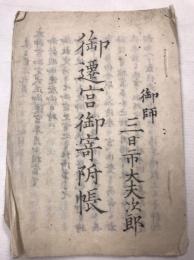 御師
三日市大夫次郎
御遷宮御寄附帳